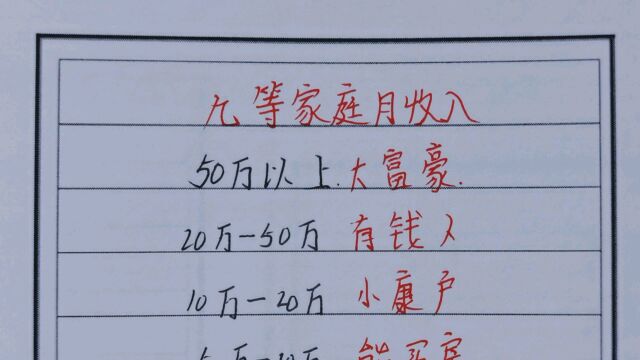 九等家庭月收入
50万以上.大富豪.
20万-50万 有钱人
10万-20万 小康户